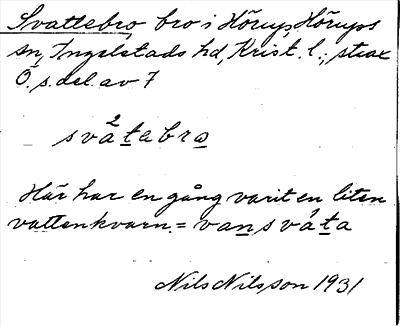 Svattebro, bro i Hörup, Hörups
sn, Ingelstads hd, Krist. l.; strax
Ö. s. del. av 7
svå²tabro
Här har en gång varit en liten
vattenkvarn. = vansvåta
Nils Nilsson 1931